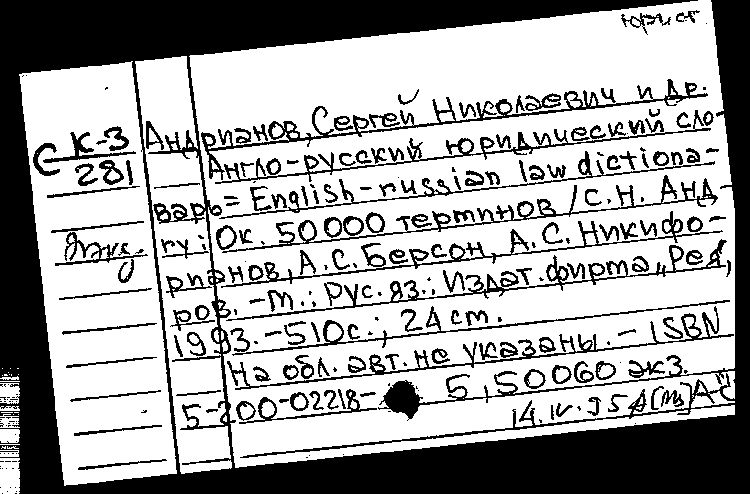 юрист
С К-3
281
Андрианов, Сергей Николаевич и др.
Англо-русский юридический сло-
варь = English-russian law dictiona-
ry: Ок. 50000 терминов / С.Н. Анд-
рианов, А.С. Берсон, А.С. Никифо-
ров. - М.: Рус. яз.: Издат. фирма „Рея",
1993. - 510с.; 24 cm.
На обл. авт. не указаны. - ISBN
5-200-02218- 5, 50060 экз.
14.IV.95